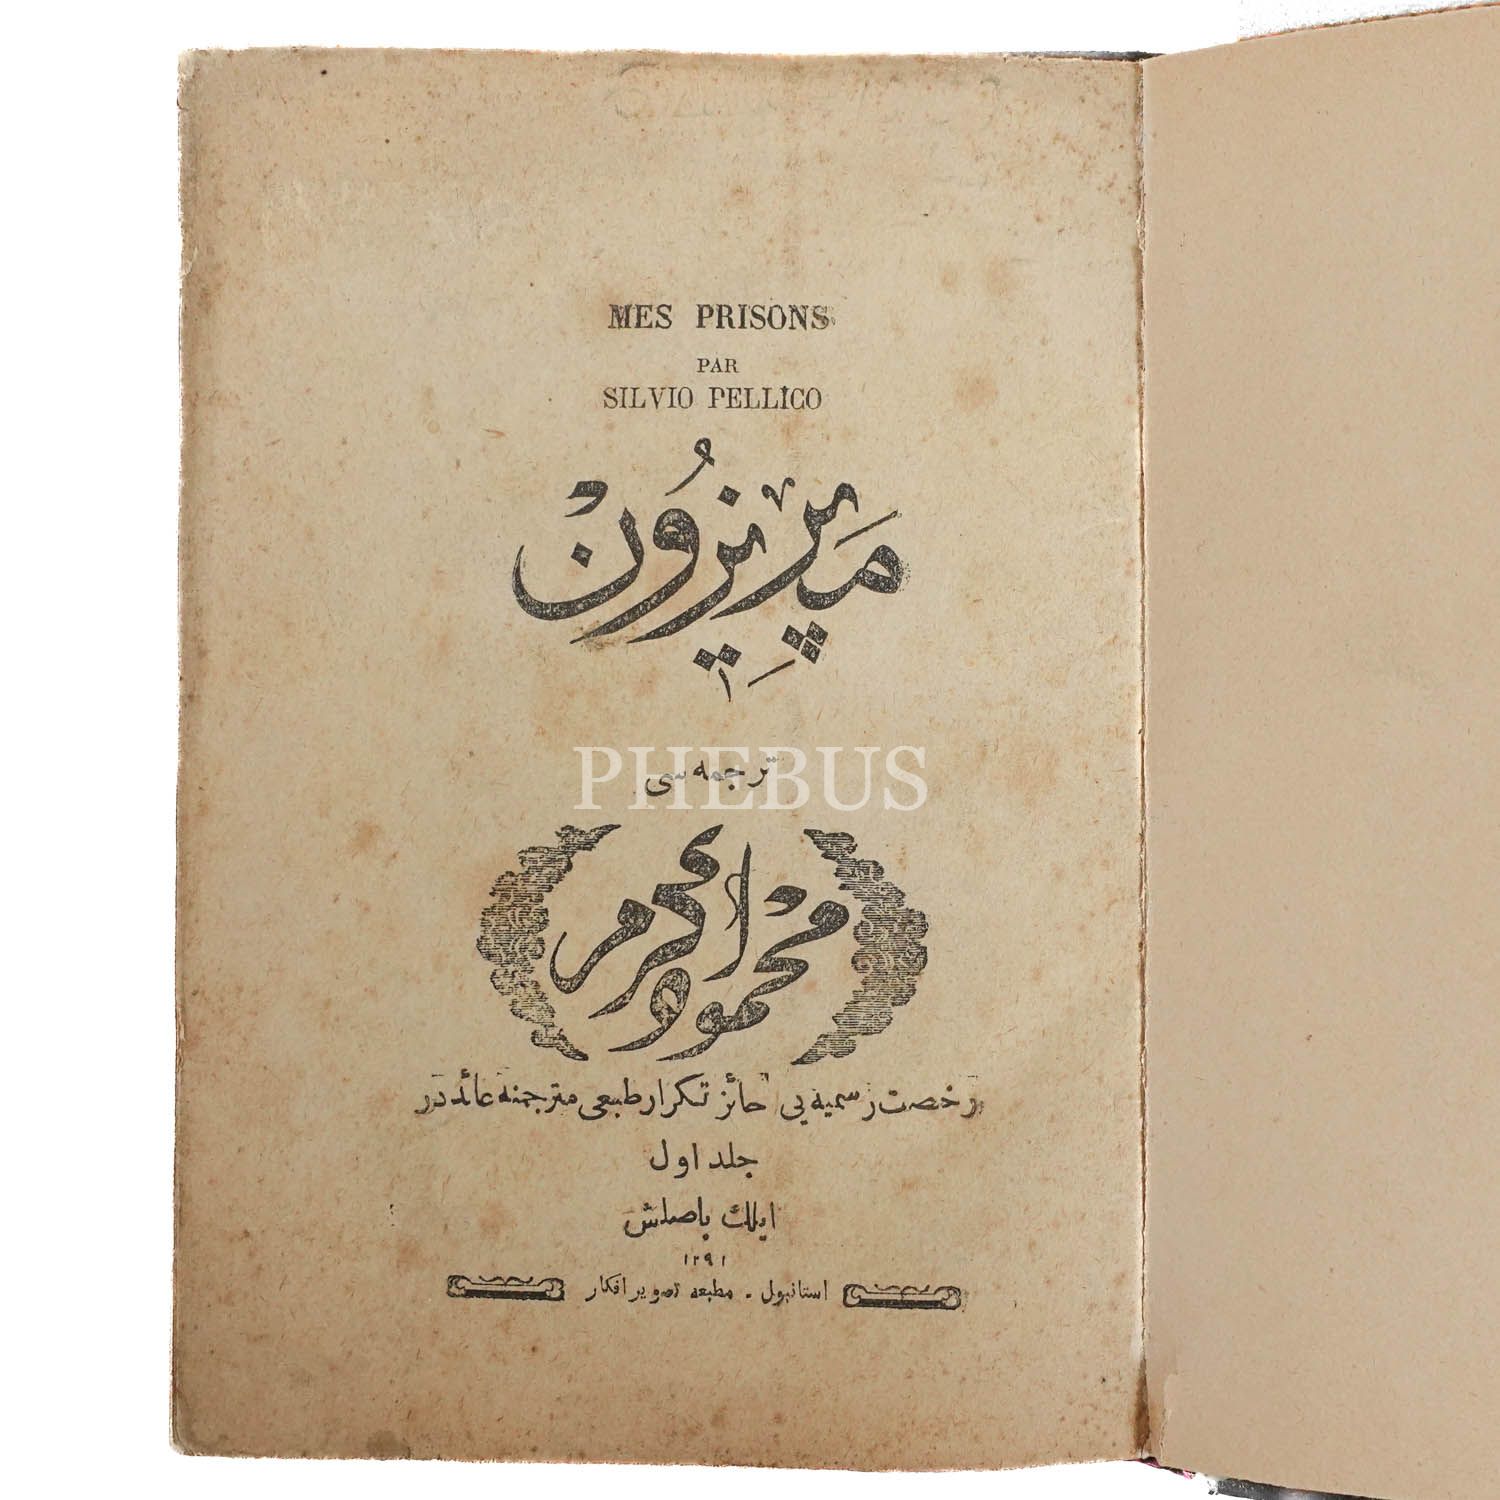 MES PRISONS
PAR
SILVIO PELLICO
مەپريزون
ترجمه سی
PHEBUS
محمود اكرم
رخصت رسميه يی حائز تكرار طبعی مترجمنه عائددر
جلد اول
ايلك باصلش
١٢٩١
استانبول ـ مطبعه تصوير افكار